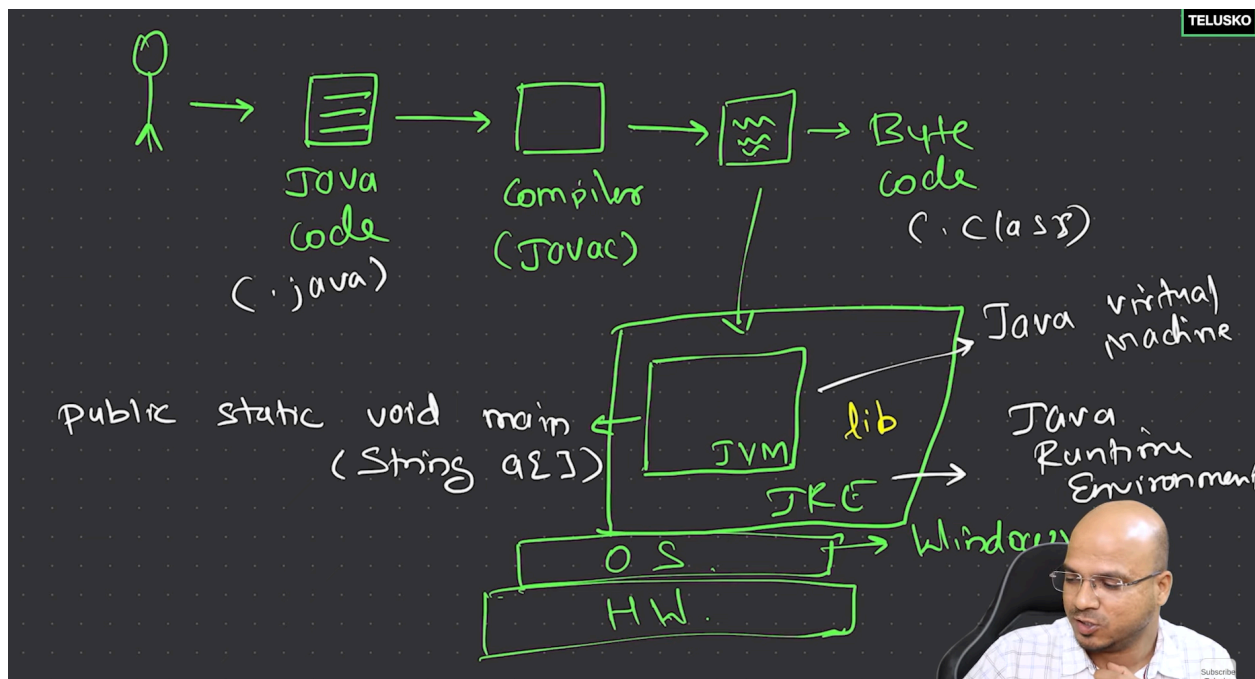 TELUSKO
Java
code
(.java)
Compiler
(Javac)
Byte
code
(.class)
Java virtual
machine
public static void main
(String a[])
JVM
lib
JRE
Java
Runtime
Environment
OS.
HW.
Subscribe